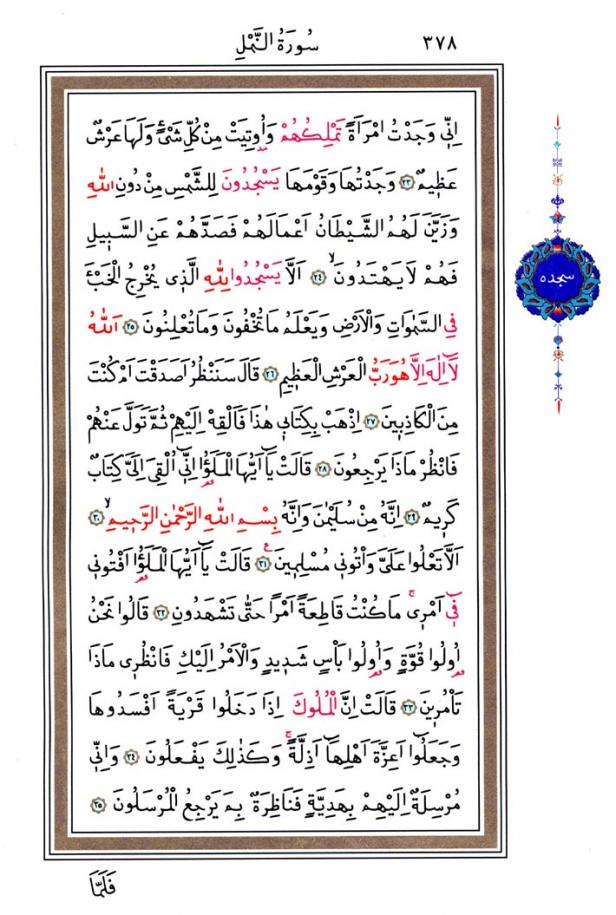 ٣٧٨ سُورَةُ النَّمْلِ
اِنّ۪ي وَجَدْتُ امْرَاَةً تَمْلِكُهُمْ وَاُو۫تِيَتْ مِنْ كُلِّ شَيْءٍ وَلَهَا عَرْشٌ
عَظ۪يمٌ ﴿٢٣﴾ وَجَدْتُهَا وَقَوْمَهَا يَسْجُدُونَ لِلشَّمْسِ مِنْ دُونِ اللّٰهِ
وَزَيَّنَ لَهُمُ الشَّيْطَانُ اَعْمَالَهُمْ فَصَدَّهُمْ عَنِ السَّب۪يلِ
فَهُمْ لَا يَهْتَدُونَۙ ﴿٢٤﴾ اَلَّا يَسْجُدُوا لِلّٰهِ الَّذ۪ي يُخْرِجُ الْخَبْءَ
فِي السَّمٰوَاتِ وَالْاَرْضِ وَيَعْلَمُ مَا تُخْفُونَ وَمَا تُعْلِنُونَ ﴿٢٥﴾ اَللّٰهُ
لَٓا اِلٰهَ اِلَّا هُوَ رَبُّ الْعَرْشِ الْعَظ۪يمِ ﴿٢٦﴾ قَالَ سَنَنْظُرُ اَصَدَقْتَ اَمْ كُنْتَ
مِنَ الْكَاذِب۪ينَ ﴿٢٧﴾ اِذْهَبْ بِكِتَاب۪ي هٰذَا فَاَلْقِهْ اِلَيْهِمْ ثُمَّ تَوَلَّ عَنْهُمْ
فَانْظُرْ مَاذَا يَرْجِعُونَ ﴿٢٨﴾ قَالَتْ يَٓا اَيُّهَا الْمَلَؤُ۬ا اِنّ۪ٓي اُلْقِيَ اِلَيَّ كِتَابٌ
كَر۪يمٌ ﴿٢٩﴾ اِنَّهُ مِنْ سُلَيْمٰنَ وَاِنَّهُ بِسْمِ اللّٰهِ الرَّحْمٰنِ الرَّح۪يمِۙ ﴿٣٠﴾
اَلَّا تَعْلُوا عَلَيَّ وَأْتُون۪ي مُسْلِم۪ينَ۟ ﴿٣١﴾ قَالَتْ يَٓا اَيُّهَا الْمَلَؤُ۬ا اَفْتُون۪ي
ف۪ٓي اَمْر۪يۚ مَا كُنْتُ قَاطِعَةً اَمْرًا حَتّٰى تَشْهَدُونِ ﴿٣٢﴾ قَالُوا نَحْنُ
اُو۬لُوا قُوَّةٍ وَاُو۬لُوا بَأْسٍ شَد۪يدٍ وَالْاَمْرُ اِلَيْكِ فَانْظُر۪ي مَاذَا
تَأْمُر۪ينَ ﴿٣٣﴾ قَالَتْ اِنَّ الْمُلُوكَ اِذَا دَخَلُوا قَرْيَةً اَفْسَدُوهَا
وَجَعَلُٓوا اَعِزَّةَ اَهْلِهَٓا اَذِلَّةًۚ وَكَذٰلِكَ يَفْعَلُونَ ﴿٣٤﴾ وَاِنّ۪ي
مُرْسِلَةٌ اِلَيْهِمْ بِهَدِيَّةٍ فَنَاظِرَةٌ بِمَ يَرْجِعُ الْمُرْسَلُونَ ﴿٣٥﴾
سجده
فَلَمَّا